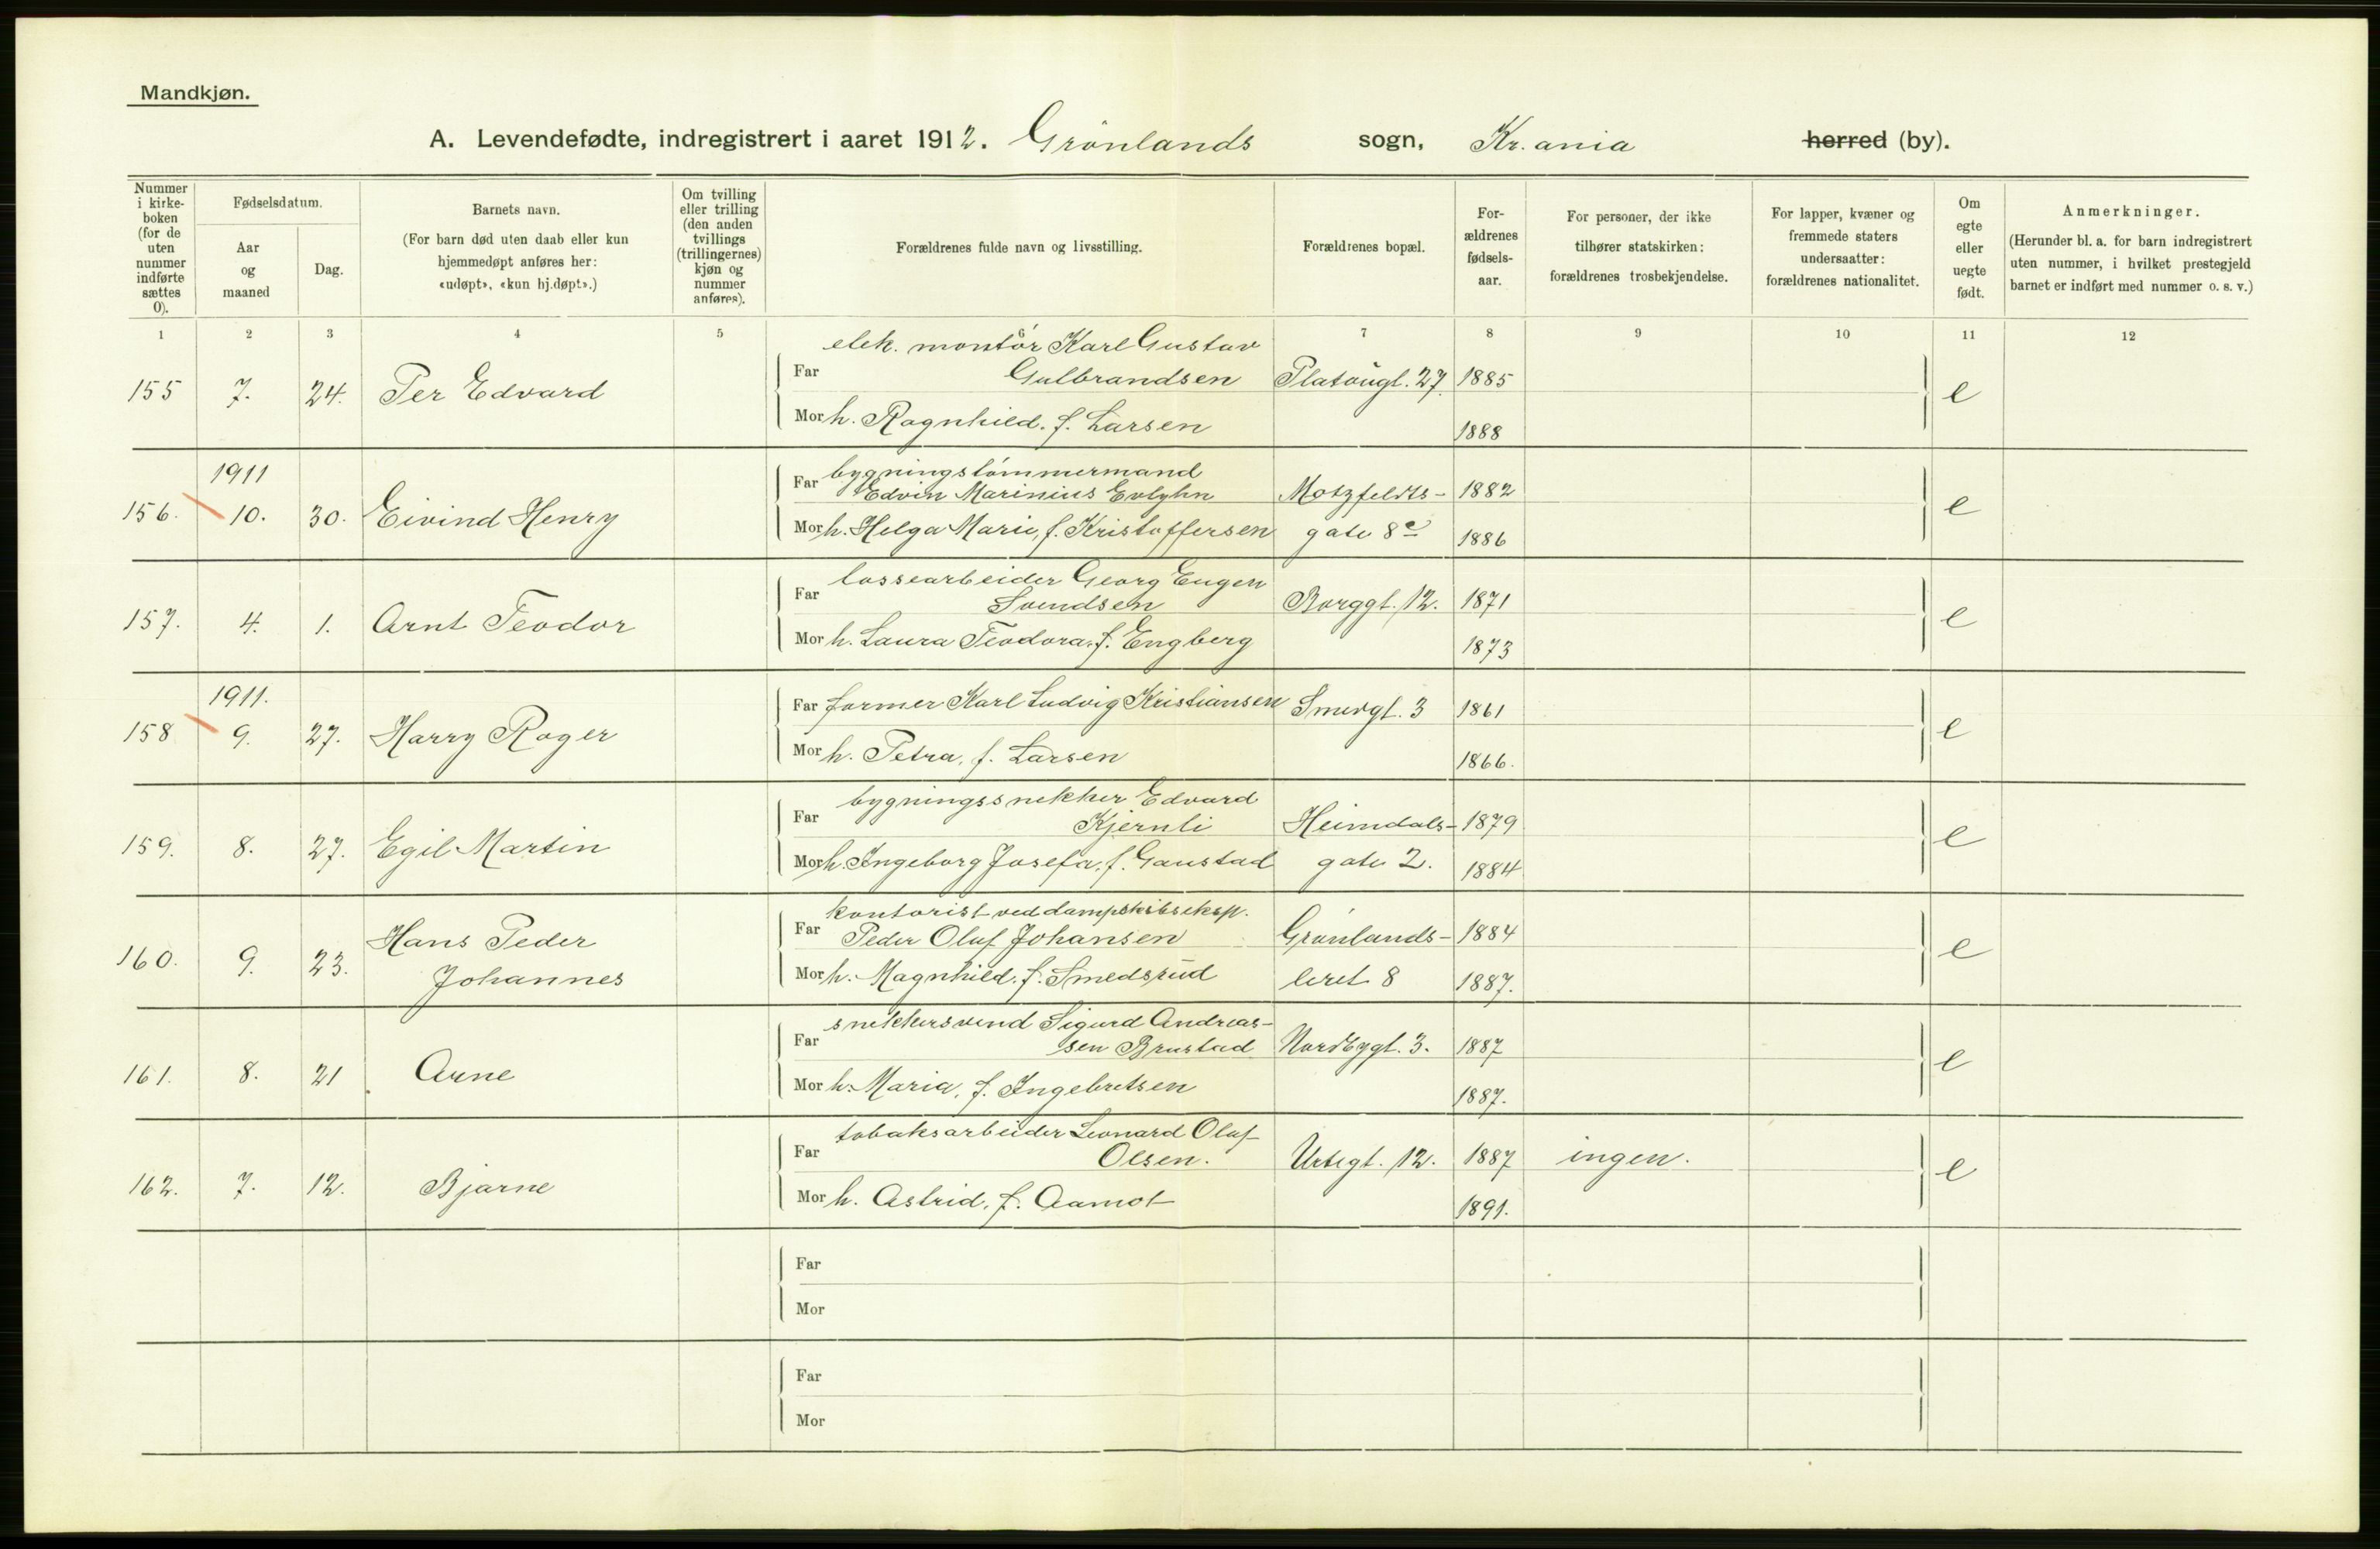 Mandkjøn.
A. Levendefødte, indregistrert i aaret 1912. Grönlands sogn, Kr.ania herred (by).
Nummer i kirke-boken (for de uten nummer indførte sættes 0).
Fødselsdatum.
Aar og maaned
Dag.
Barnets navn.
(For barn død uten daab eller kun hjemmedøpt anføres her: «udøpt», «kun hj.døpt».)
Om tvilling eller trilling (den anden tvillings (trillingernes) kjøn og nummer anføres).
Forældrenes fulde navn og livsstilling.
Forældrenes bopæl.
For-ældrenes fødsels-aar.
For personer, der ikke tilhører statskirken: forældrenes trosbekjendelse.
For lapper, kvæner og fremmede staters undersaatter: forældrenes nationalitet.
Om egte eller uegte født.
Anmerkninger.
(Herunder bl. a. for barn indregistrert uten nummer, i hvilket prestegjeld barnet er indført med nummer o. s. v.)
1 2 3 4 5 6 7 8 9 10 11 12
elek. montör Karl Gustav
155 7. 24. Per Edvard Far Gulbrandsen Platougt. 27. 1885 e
Mor h. Ragnhild. f. Larsen 1888
1911 Far bygningstömmermand
Edvin Marinius Evlyhn Motzfeldts- 1882
156. 10. 30. Eivind Henry Mor h. Helga Marie, f. Kristoffersen gate 8c 1886 e
lossearbeider Georg Eugen
157. 4. 1. Arnt Teodor Far Svendsen Borggt. 12. 1871 e
Mor h. Laura Teodora. f. Engberg 1873
1911. Far former Karl Ludvig Kristiansen Smedgt. 3 1861
158 9. 27. Harry Roger Mor h. Petra, f. Larsen 1866. e
bygningssnekker Edvard
Far Kjernli Heimdals- 1879
159. 8. 27. Egil Martin Mor h. Ingeborg Josefa, f. Gaustad gate 2. 1884 e
kontorist ved dampskibseksp.
Hans Peder Far Peder Olaf Johansen Grønlands- 1884
160. 9. 23. Johannes Mor h. Magnhild. f. Smedsrud leret 8 1887. e
snekkersvend Sigurd Andreas-
Far sen Brustad Nordbygt. 3. 1887
161. 8. 21 Arne Mor h. Maria, f. Ingebretsen 1887. e
tobaksarbeider Leonard Olaf
Far Olsen. Urtegt. 12. 1887 ingen.
162. 7. 12. Bjarne Mor h. Astrid, f. Aamot 1891. e
Far
Mor
Far
Mor